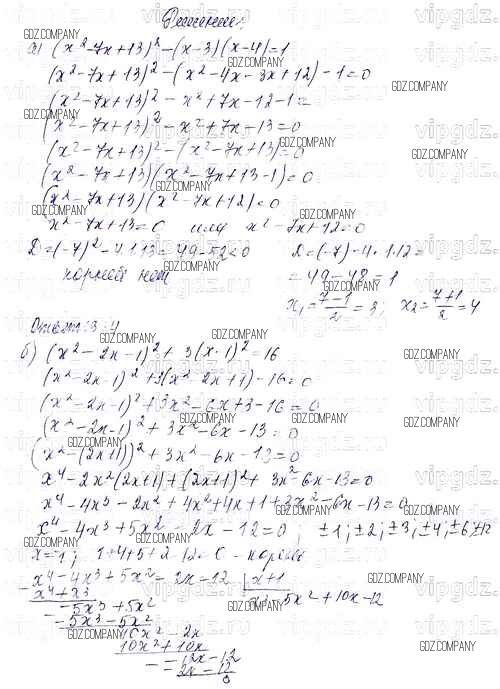 Решение:
а) (x² - 7x + 13)² - (x - 3)(x - 4) = 1
(x² - 7x + 13)² - (x² - 4x - 3x + 12) - 1 = 0
(x² - 7x + 13)² - x² + 7x - 12 - 1 =
(x² - 7x + 13)² - x² + 7x - 13 = 0
(x² - 7x + 13)² - (x² - 7x + 13) = 0
(x² - 7x + 13)(x² - 7x + 13 - 1) = 0
(x² - 7x + 13)(x² - 7x + 12) = 0
x² - 7x + 13 = 0 или x² - 7x + 12 = 0
D = (-7)² - 4·1·13 = 49 - 52 < 0 D = (-7) - 4·1·12 =
корней нет = 49 - 48 = 1
x₁ = (7-1)/2 = 3; x₂ = (7+1)/2 = 4
Ответ: 3; 4
б) (x² - 2x - 1)² + 3(x - 1)² = 16
(x² - 2x - 1)² + 3(x² - 2x + 1) - 16 = 0
(x² - 2x - 1)² + 3x² - 6x + 3 - 16 = 0
(x² - 2x - 1)² + 3x² - 6x - 13 = 0
(x² - (2x + 1))² + 3x² - 6x - 13 = 0
x⁴ - 2x²(2x + 1) + (2x + 1)² + 3x² - 6x - 13 = 0
x⁴ - 4x³ - 2x² + 4x² + 4x + 1 + 3x² - 6x - 13 = 0
x⁴ - 4x³ + 5x² - 2x - 12 = 0; ±1; ±2; ±3; ±4; ±6; ±12
x = -1; 1 + 4 + 5 + 2 - 12 = 0 - корень
x⁴ - 4x³ + 5x² - 2x - 12 | x + 1
x⁴ + x³ x³ - 5x² + 10x - 12
-5x³ + 5x²
-5x³ - 5x²
10x² - 2x
10x² + 10x
-12x - 12
0
GDZ.COMPANY
vipgdz.